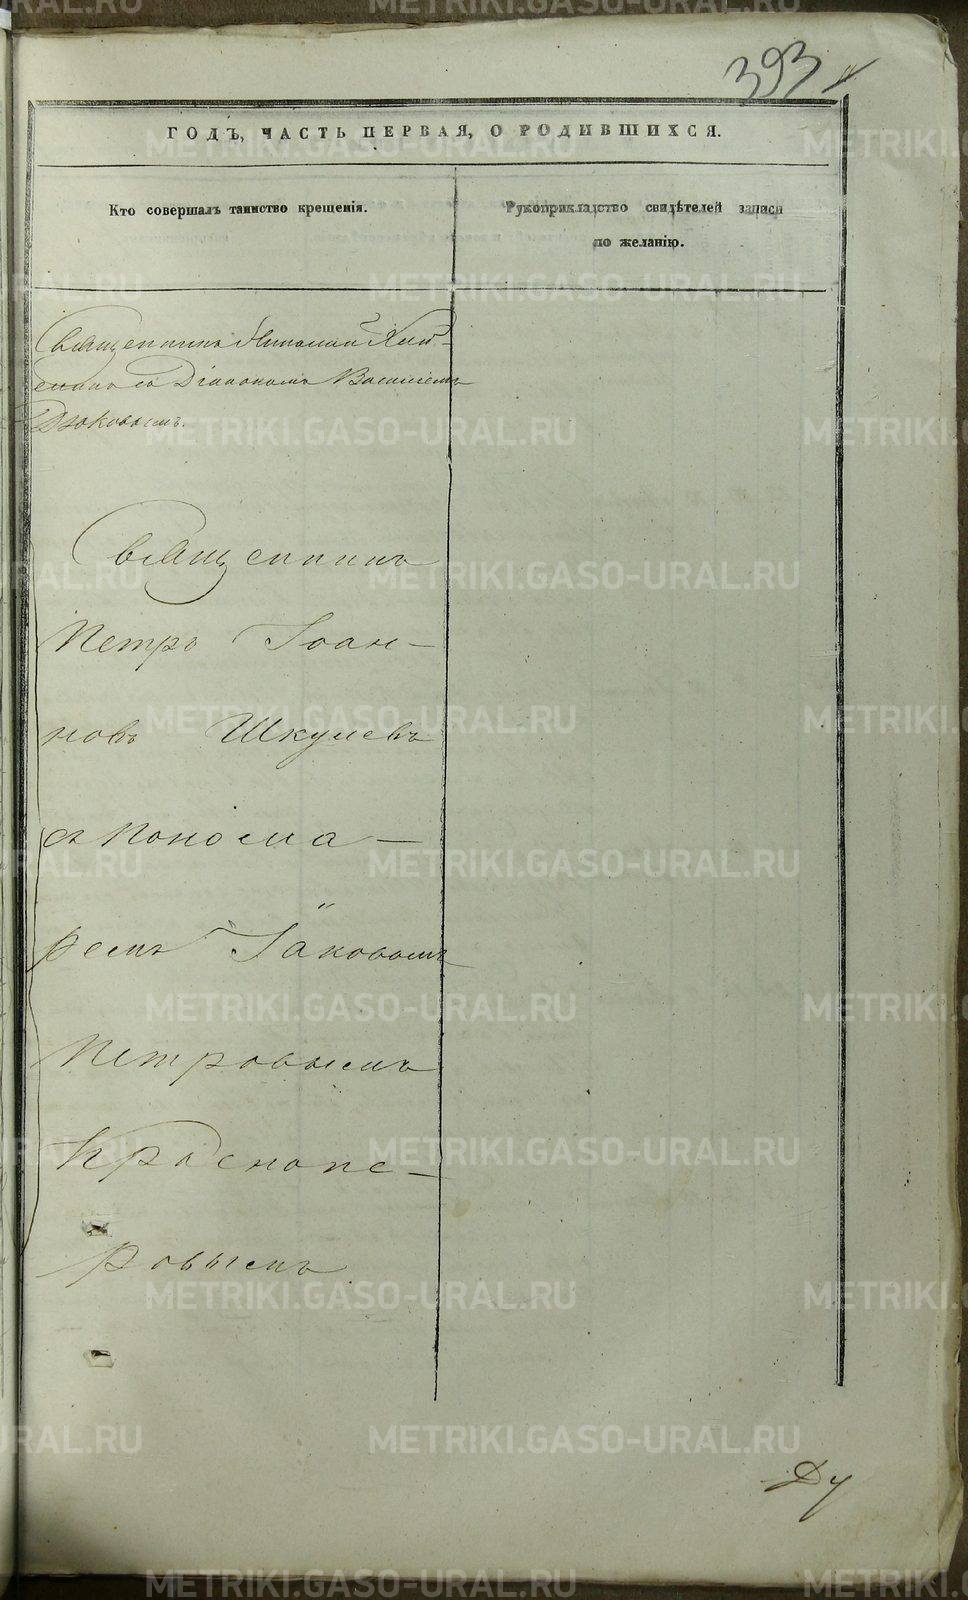 393
ГОДЪ, ЧАСТЬ ПЕРВАЯ, О РОДИВШИХСЯ.
Кто совершалъ таинство крещенія.
Рукоприкладство свидѣтелей записи
по желанію.
Священникъ Николай
съ Діакономъ Василіемъ
Дюковымъ.
Священникъ
Петръ Іоан-
новъ Шкулевъ
съ Понома-
ремъ Іаковомъ
Петровымъ
Краснопе-
ровымъ
Ду
METRIKI.GASO-URAL.RU